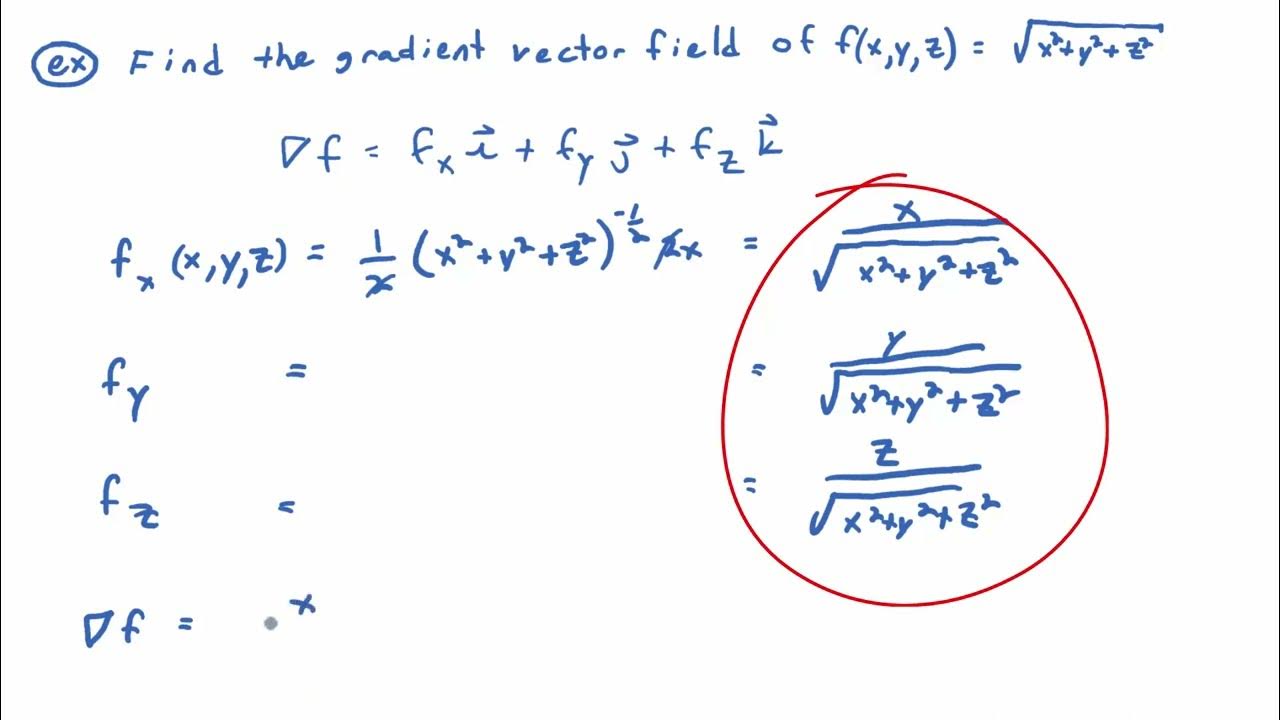 ex Find the gradient vector field of f(x,y,z) = √(x²+y²+z²)
∇f = fₓ i⃗ + f_y j⃗ + f_z k⃗
fₓ(x,y,z) = 1/2 (x²+y²+z²)^(-1/2) 2x = x/√(x²+y²+z²)
f_y = = y/√(x²+y²+z²)
f_z = = z/√(x²+y²+z²)
∇f = x